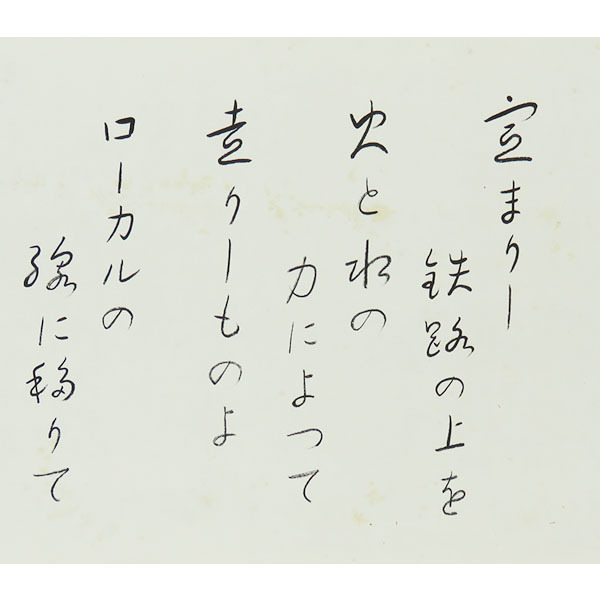 定まりし
鉄路の上を
火と水の
力によつて
走りしものよ
ローカルの
線に移りて